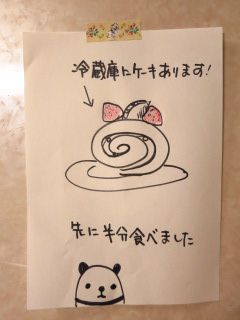 冷蔵庫にケーキあります!
先に半分食べました